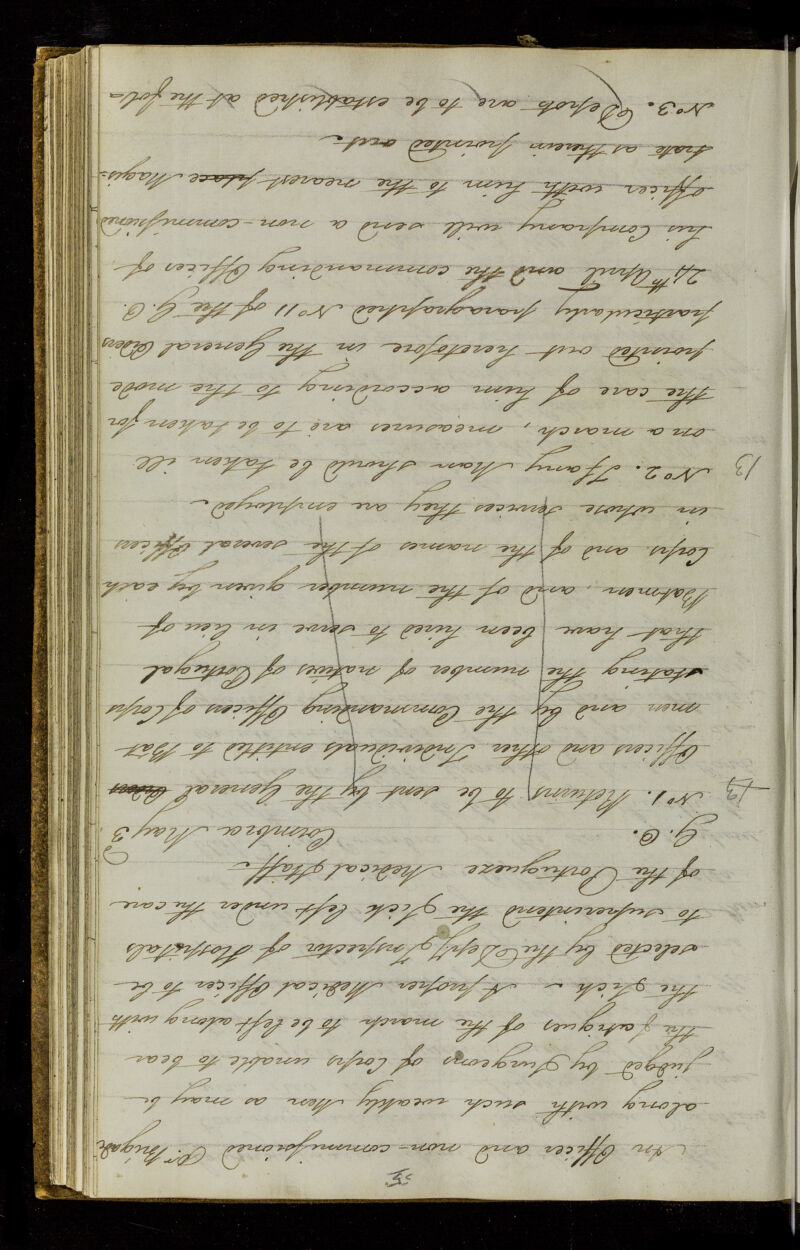 An Officer and non-commissioned Pr. Brigade
along with such weakly Men as may be
judged by Surgeons of Corps unable to bear
the fatigues of the march to be left along with
the sick - A proper Medical Officer to be
selected by the Depy. Inspector of Hospitals
to superintend the Sick left under the care
of the Portugueze Medical Staff -
G. O. Coimbra May 3
12 No 1. Returns to be sent by the General Orders
Officers and other Individuals entitled to Bat
men and by the Commanding Officers of Corps
stating the number of natives of Portugal
that have been hired to serve in lieu of
Batmen, and of the number given by each
Corps and of the names of the several Officers
in whose services they are employed -
13 No 2. If any Man should be taken ill
on a march, measures are to be taken for
the care of him according to the mode
pointed out heretofore in the General Orders
particularly paragraphed No 11 of the G. O.
24th April and the commanding Officer of
his Company will send a non-commissioned
officer with him to the nearest place Magis-
trate as therein pointed out -
No 3. Depots are to be established at the fol-